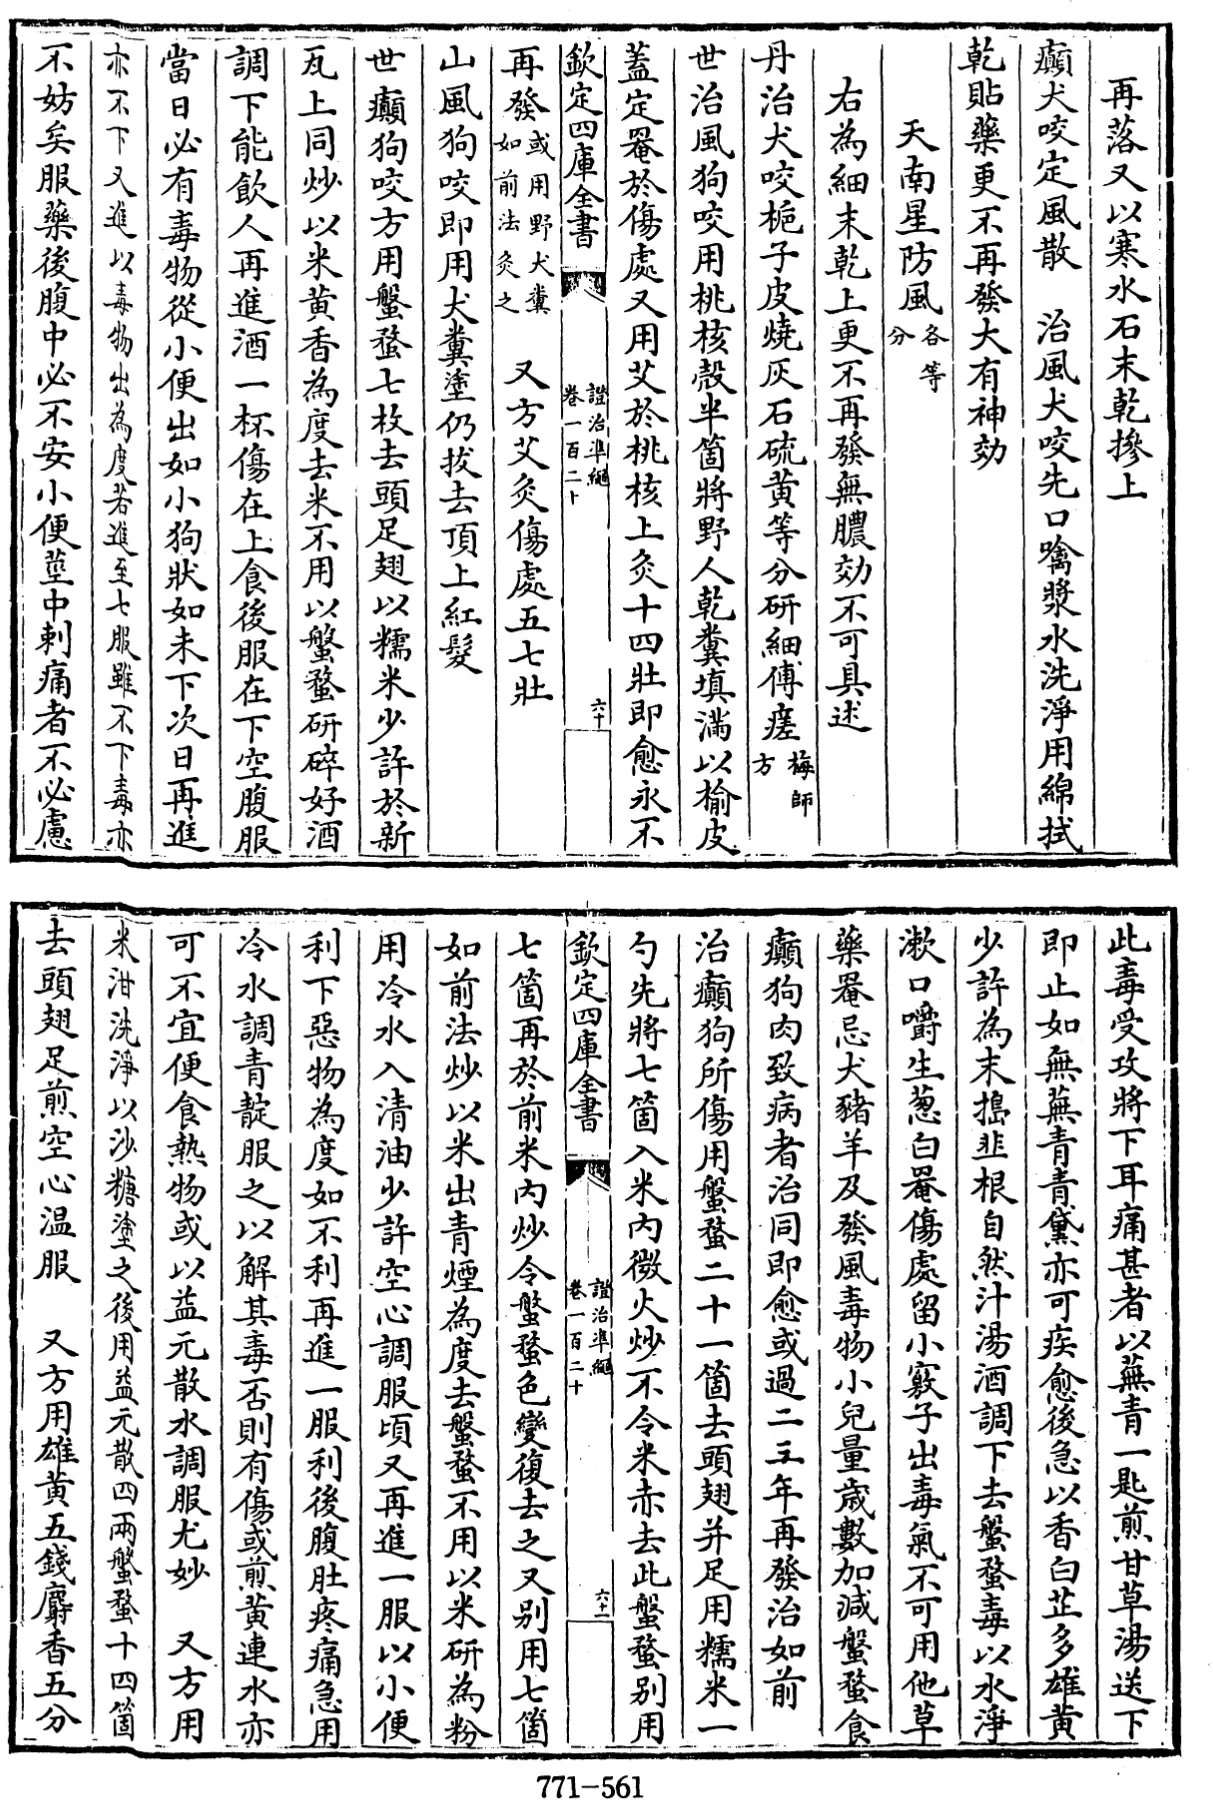 再落又以寒水石末乾摻上
癲犬咬定風散　治風犬咬先口噙漿水洗淨用綿拭
乾貼藥更不再發大有神効
天南星防風各等分
右為細末乾上更不再發無膿効不可具述
丹治犬咬梔子皮燒灰石硫黄等分研細傅瘥梅師方
世治風狗咬用桃核殼半箇將野人乾糞填滿以榆皮
蓋定罨於傷處又用艾於桃核上灸十四壯即愈永不
欽定四庫全書
證治準繩
卷一百二十
六十
再發或用野犬糞如前法灸之　又方艾灸傷處五七壯
山風狗咬即用犬糞塗仍拔去頂上紅髮
世癲狗咬方用盤蝥七枚去頭足翅以糯米少許於新
瓦上同炒以米黄香為度去米不用以盤蝥研碎好酒
調下能飲人再進酒一杯傷在上食後服在下空腹服
當日必有毒物從小便出如小狗狀如未下次日再進
亦不下又進以毒物出為度若進至七服雖不下毒亦
不妨矣服藥後腹中必不安小便莖中刺痛者不必慮
此毒受攻將下耳痛甚者以蕪青一匙煎甘草湯送下
即止如無蕪青青黛亦可疾愈後急以香白芷多雄黄
少許為末搗韭根自然汁湯酒調下去盤蝥毒以水淨
漱口嚼生葱白罨傷處留小竅子出毒氣不可用他草
藥罨忌犬豬羊及發風毒物小兒量歲數加減盤蝥食
癲狗肉致病者治同即愈或過二三年再發治如前
治癲狗所傷用盤蝥二十一箇去頭翅并足用糯米一
勺先將七箇入米内微火炒不令米赤去此盤蝥别用
欽定四庫全書
證治準繩
卷一百二十
六十一
七箇再於前米内炒令盤蝥色變復去之又别用七箇
如前法炒以米出青煙為度去盤蝥不用以米研為粉
用冷水入清油少許空心調服頃又再進一服以小便
利下惡物為度如不利再進一服利後腹肚疼痛急用
冷水調青靛服之以解其毒否則有傷或煎黄連水亦
可不宜便食熱物或以益元散水調服尤妙　又方用
米泔洗淨以沙糖塗之後用益元散四兩盤蝥十四箇
去頭翅足煎空心温服　又方用雄黄五錢麝香五分
771-561